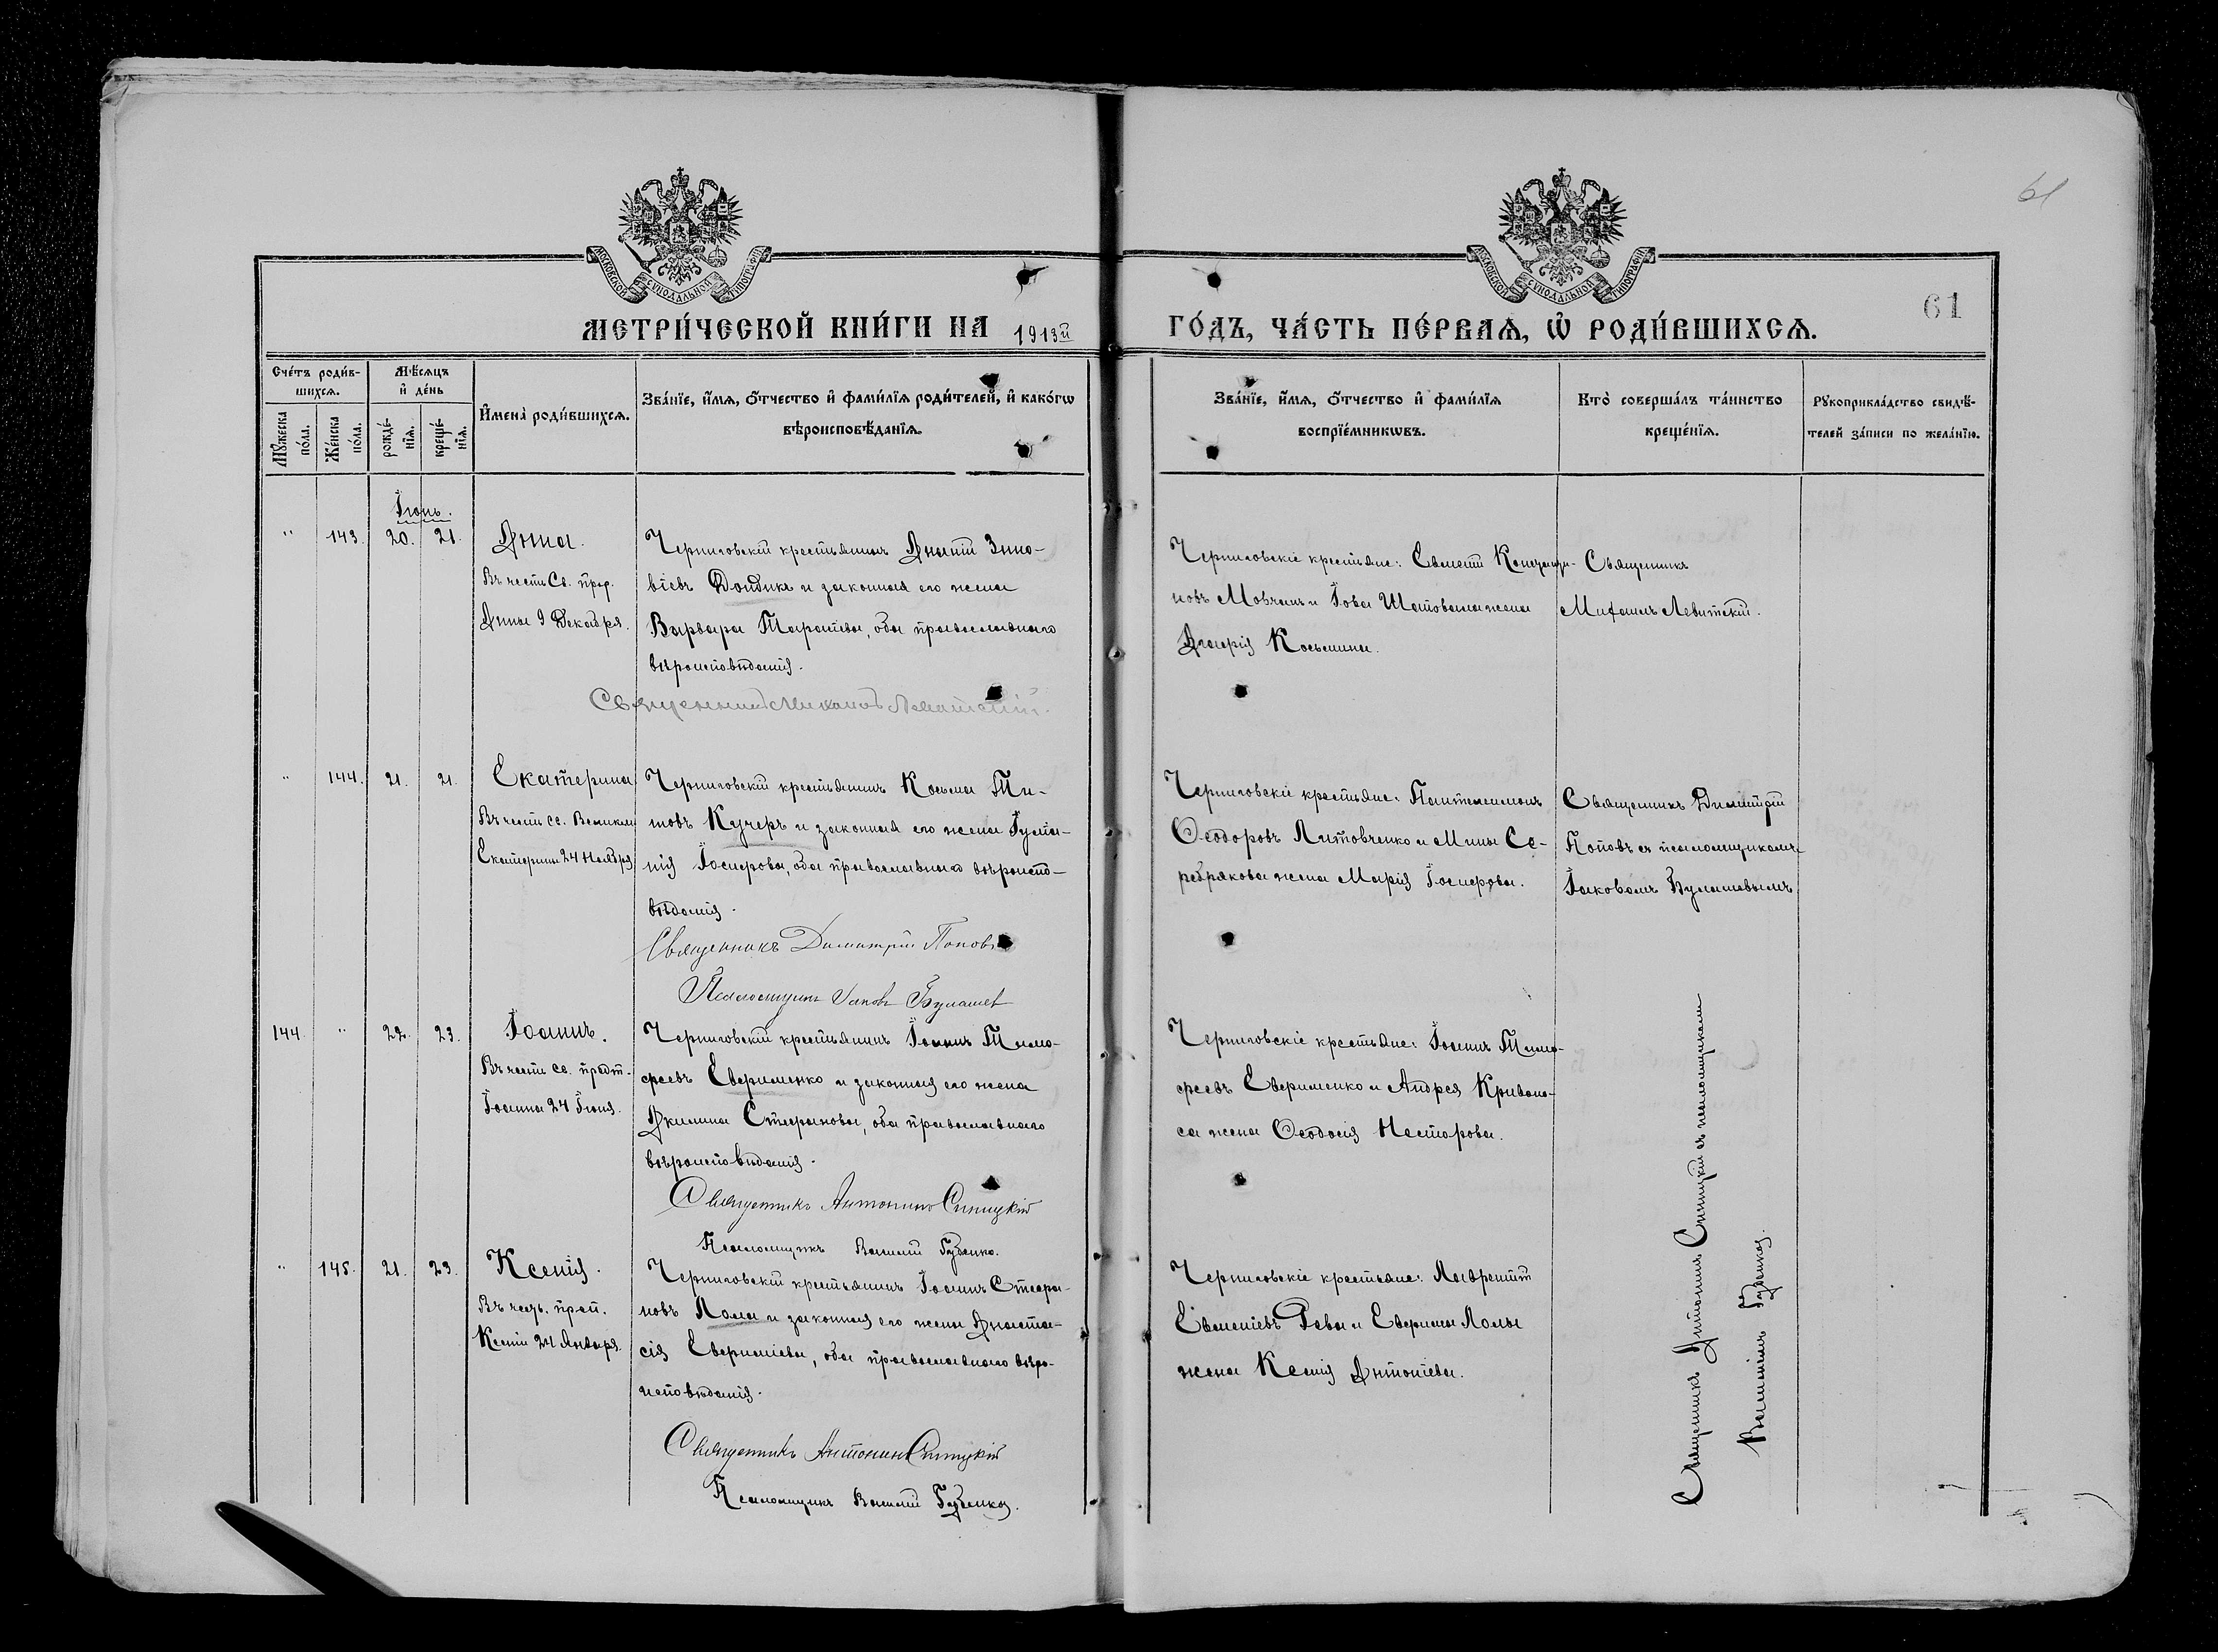 61
МОСКОВСКОЙ СѴНОДАЛЬНОЙ ТИПОГРАФІИ
МОСКОВСКОЙ СѴНОДАЛЬНОЙ ТИПОГРАФІИ
61
МЕТРИ́ЧЕСКОЙ КНИ́ГИ НА 1913й ГО́ДЪ, ЧА́СТЬ ПЕ́РВАѦ, Ѡ҆ РОДИ́ВШИХСѦ.
Сче́тъ роди́в-
шихсѧ.
Мꙋ́жеска по́ла.
Же́нска по́ла.
Мѣ́сѧцъ
и҆ де́нь
рожде́-
нїѧ.
креще́-
нїѧ.
И҆мена̀ роди́вшихсѧ.
Зва́нїе, и҆́мѧ, ѻ҆́тчество и҆ фами́лїѧ роди́телей, и҆ како́гѡ
вѣроисповѣ́данїѧ.
Зва́нїе, и҆́мѧ, ѻ҆́тчество и҆ фами́лїѧ
воспрїе́мникѡвъ.
Кто̀ соверша́лъ та́инство
креще́нїѧ.
Рꙋкоприкла́дство свидѣ́-
телей за́писи по жела́нїю.
Іюнь.
" 143. 20. 21. Анна.
Въ честь Св. прор.
Анны 9 Декабря.
Черниговскій крестьянинъ Ананій Зино-
віевъ Дондикъ и законная его жена
Варвара Тарасіева, оба православнаго
вѣроисповѣданія.
Священникъ Михаилъ Левитскій.
Черниговскіе крестьяне:
новъ Мовчанъ и Іова Шаповала жена
Агафія Косьмина.
Священникъ
Михаилъ Левитскій.
" 144. 21. 21. Екатерина
Въ честь св. Великом
Екатерины 24 Ноября
Черниговскій крестьянинъ Косьма Ти-
товъ Кучеръ и законная его жена Іулiа-
нія Іосифова, оба православнаго вѣроиспо-
вѣданія.
Священникъ Димитрій Поповъ
Псаломщикъ Іаковъ Булашев
Черниговскіе крестьяне: Пантелеимонъ
Ѳеодоровъ Литовченко и Мины Се-
ребрякова жена Марія Іосифова.
Священникъ Димитрій
Поповъ съ псаломщикомъ
Іаковомъ Булашевымъ
144. " 22. 23. Іоаннъ.
Въ честь св. предт.
Іоанна 24 Іюня.
Черниговскій крестьянинъ Іоаннъ Тимо-
феевъ Ефименко и законная его жена
Акилина Стефанова, оба православнаго
вѣроисповѣданія.
Священникъ Антонинъ Синицкій
Псаломщикъ Василій Губенко.
Черниговскіе крестьяне: Іоаннъ Тимо-
феевъ Ефименко и Андрея Кривоно-
са жена Ѳеодосія Несторова.
" 145. 21. 23. Ксенія.
Въ честь. преп.
Ксеніи 24 Января.
Черниговскій крестьянинъ Іоаннъ Стефа-
новъ Лома и законная его жена Анаста-
сія Евфиміева, оба православнаго вѣро-
исповѣданія.
Священникъ Антонинъ Синицкій
Псаломщикъ Василій Губенко.
Черниговскіе крестьяне: Лаврентій
Евменіевъ Рева и Ефрема Ломы
жена Ксенія Антоніева.
Священникъ Антонинъ Синицкій съ псаломщикомъ
Василіемъ Губенко.